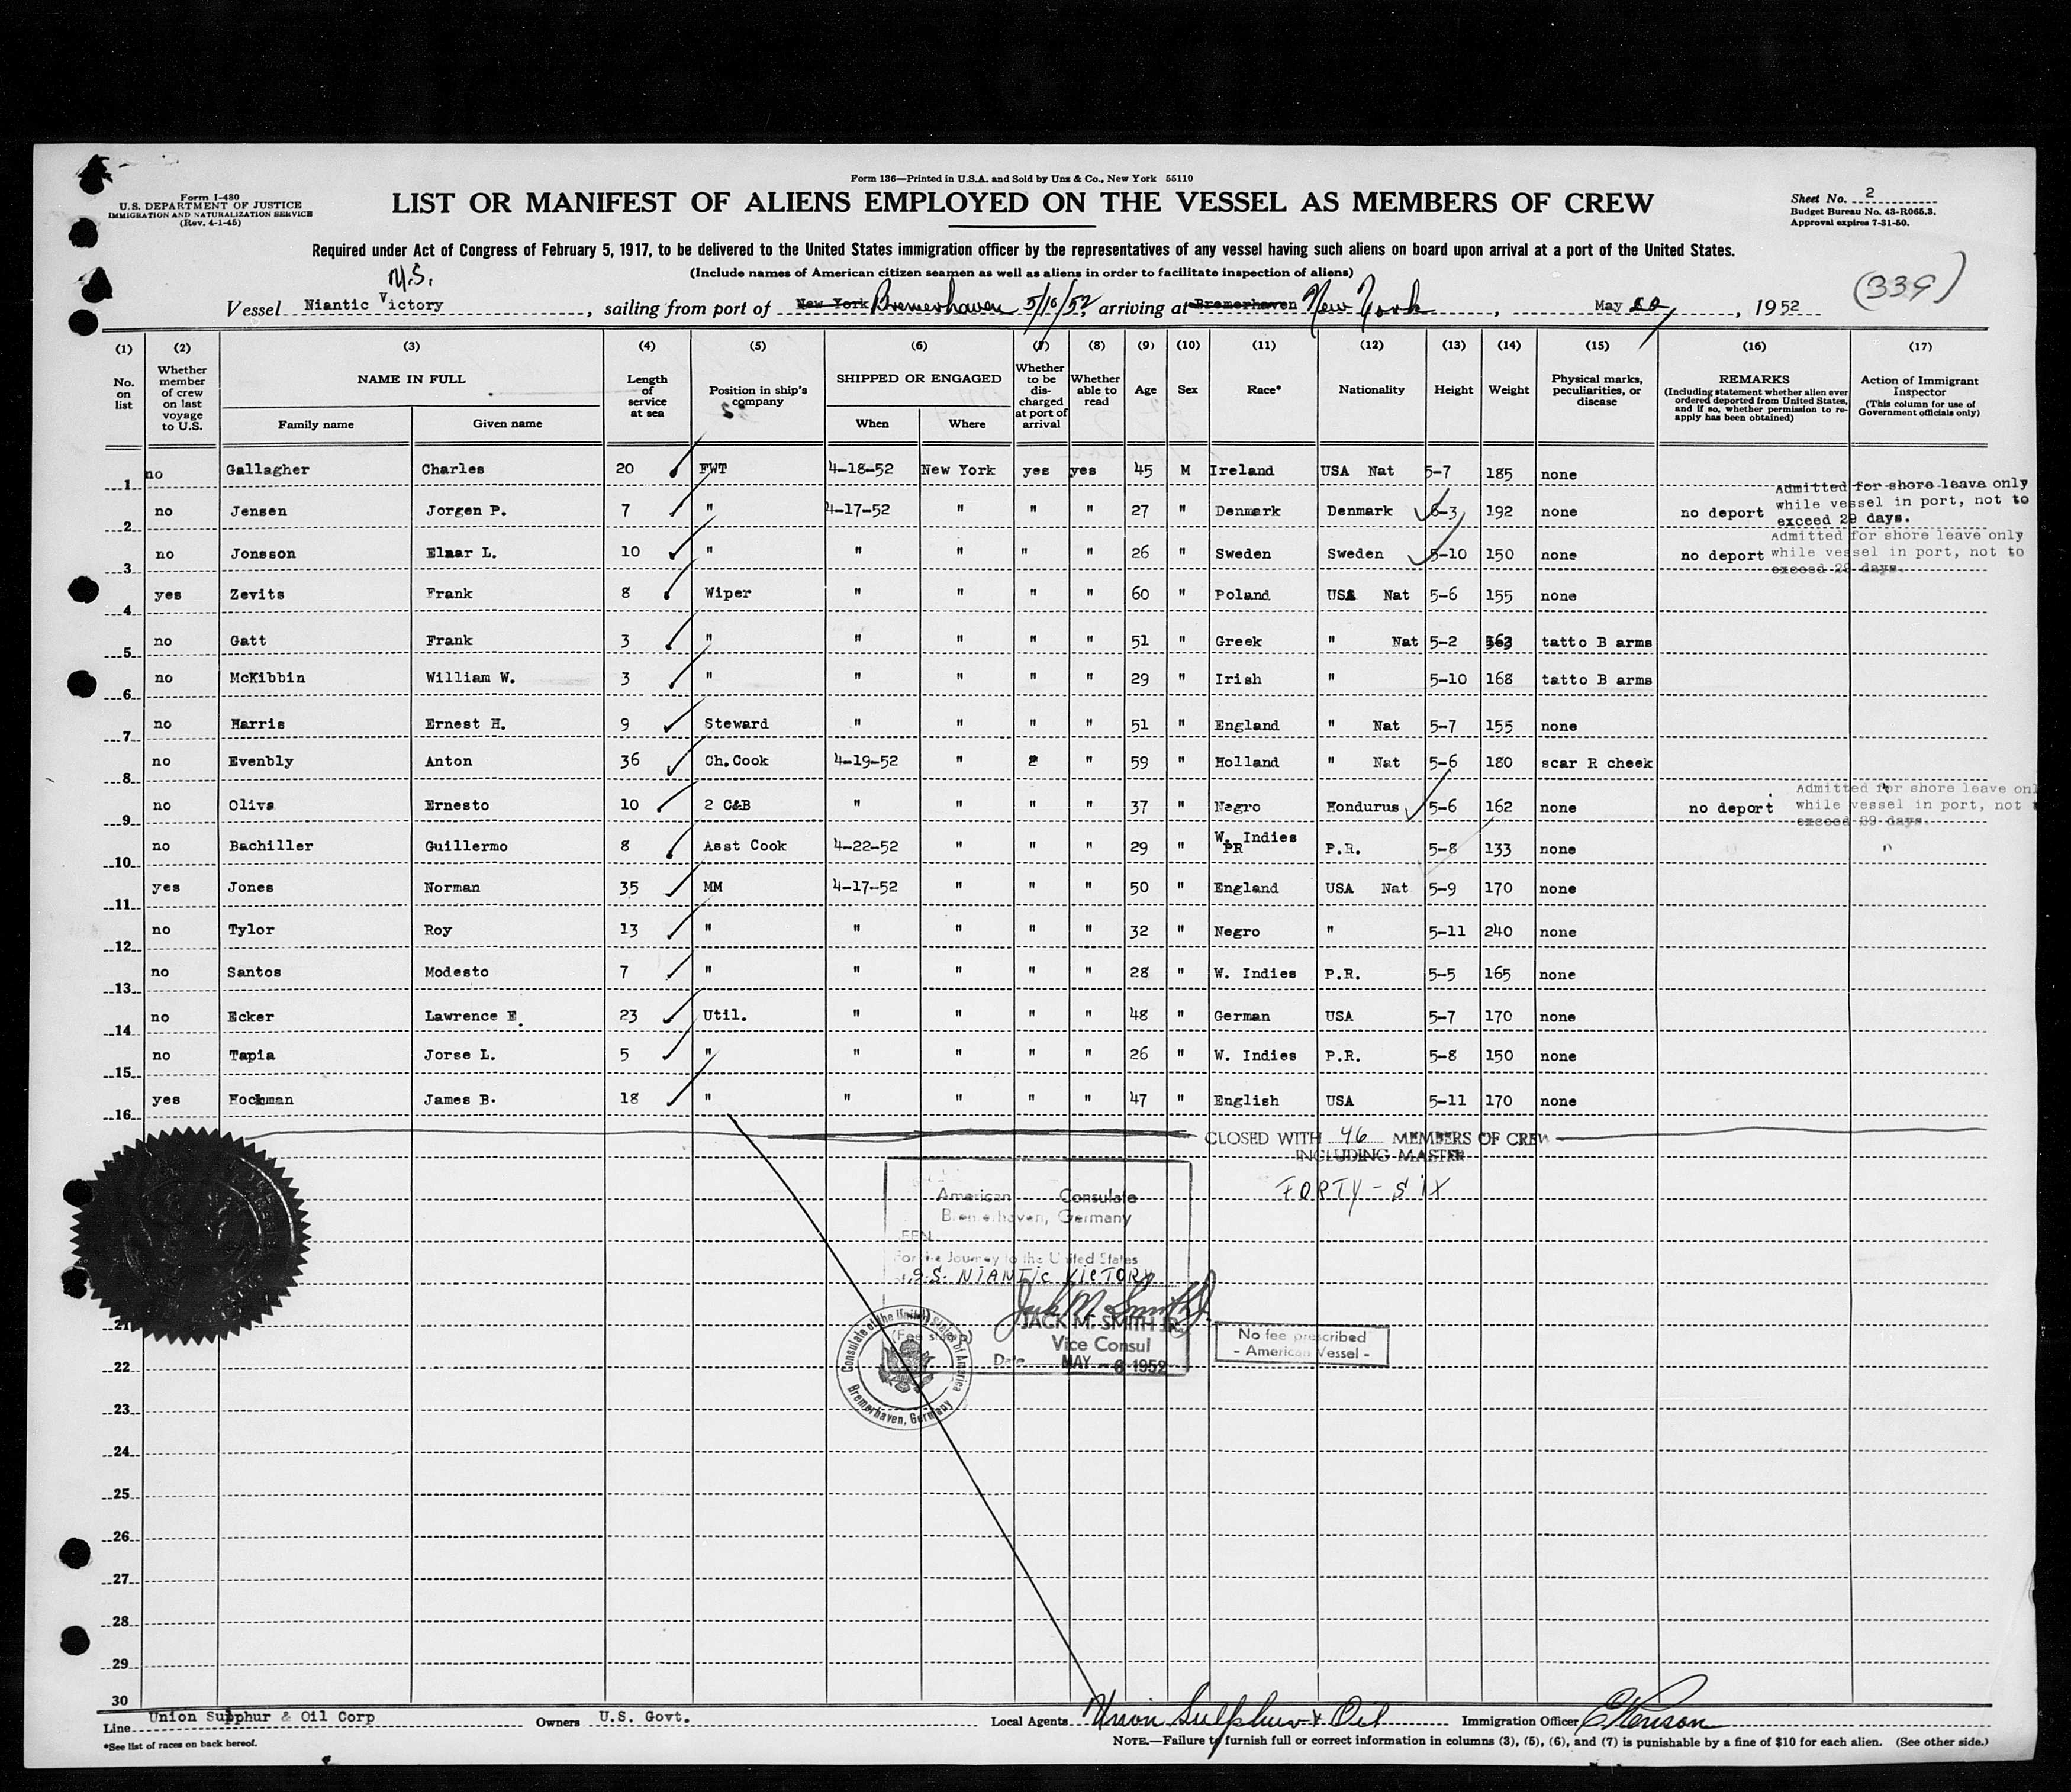 Form 136—Printed in U.S.A. and Sold by Unz & Co., New York 55110
Form I-480
U.S. DEPARTMENT OF JUSTICE
IMMIGRATION AND NATURALIZATION SERVICE
(Rev. 4-1-45)
LIST OR MANIFEST OF ALIENS EMPLOYED ON THE VESSEL AS MEMBERS OF CREW
Sheet No. 2
Budget Bureau No. 43-R065.3.
Approval expires 7-31-50.
Required under Act of Congress of February 5, 1917, to be delivered to the United States immigration officer by the representatives of any vessel having such aliens on board upon arrival at a port of the United States.
(Include names of American citizen seamen as well as aliens in order to facilitate inspection of aliens)
(339)
Vessel Niantic Victory, sailing from port of New York Bremerhaven 5/10/52, arriving at Bremerhaven New York, May 20, 1952
(1) (2) (3) (4) (5) (6) (7) (8) (9) (10) (11) (12) (13) (14) (15) (16) (17)
No. on list
Whether member of crew on last voyage to U.S.
NAME IN FULL
Family name Given name
Length of service at sea
Position in ship's company
SHIPPED OR ENGAGED
When Where
Whether to be discharged at port of arrival
Whether able to read
Age Sex Race* Nationality Height Weight
Physical marks, peculiarities, or disease
REMARKS
(Including statement whether alien ever ordered deported from United States, and if so, whether permission to reapply has been obtained)
Action of Immigrant Inspector
(This column for use of Government officials only)
1 no Gallagher Charles 20 FWT 4-18-52 New York yes yes 45 M Ireland USA Nat 5-7 185 none
2 no Jensen Jorgen P. 7 " 4-17-52 " " " 27 " Denmark Denmark 6-3 192 none no deport Admitted for shore leave only while vessel in port, not to exceed 29 days.
3 no Jonsson Elmar L. 10 " " " " " 26 " Sweden Sweden 5-10 150 none no deport Admitted for shore leave only while vessel in port, not to exceed 29 days.
4 yes Zevits Frank 8 Wiper " " " " 60 " Poland USA Nat 5-6 155 none
5 no Gatt Frank 3 " " " " " 51 " Greek " Nat 5-2 163 tatto B arms
6 no McKibbin William W. 3 " " " " " 29 " Irish " 5-10 168 tatto B arms
7 no Harris Ernest H. 9 Steward " " " " 51 " England " Nat 5-7 155 none
8 no Evenbly Anton 36 Ch.Cook 4-19-52 " " " 59 " Holland " Nat 5-6 180 scar R cheek
9 no Oliva Ernesto 10 2 C&B " " " " 37 " Negro Hondurus 5-6 162 none no deport Admitted for shore leave onl while vessel in port, not exceed 29 days.
10 no Bachiller Guillermo 8 Asst Cook 4-22-52 " " " 29 " W. Indies PR P.R. 5-8 133 none
11 yes Jones Norman 35 MM 4-17-52 " " " 50 " England USA Nat 5-9 170 none
12 no Tylor Roy 13 " " " " " 32 " Negro " 5-11 240 none
13 no Santos Modesto 7 " " " " " 28 " W. Indies P.R. 5-5 165 none
14 no Ecker Lawrence E. 23 Util. " " " " 48 " German USA 5-7 170 none
15 no Tapia Jorse L. 5 " " " " " 26 " W. Indies P.R. 5-8 150 none
16 yes Hockman James B. 18 " " " " " 47 " English USA 5-11 170 none
CLOSED WITH 46 MEMBERS OF CREW
INCLUDING MASTER
FORTY-SIX
American Consulate
Bremerhaven, Germany
For the Journey to the United States
S.S. NIANTIC VICTORY
Jack M. Smith Jr.
JACK M. SMITH JR.
Vice Consul
Date MAY -8 1952
(Fee stamp)
Consulate of the United States of America
Bremerhaven, Germany
No fee prescribed
- American Vessel -
21
22
23
24
25
26
27
28
29
30
Line Union Sulphur & Oil Corp Owners U.S. Govt. Local Agents Union Sulphur & Oil Immigration Officer
*See list of races on back hereof.
NOTE.—Failure to furnish full or correct information in columns (3), (5), (6), and (7) is punishable by a fine of $10 for each alien. (See other side.)